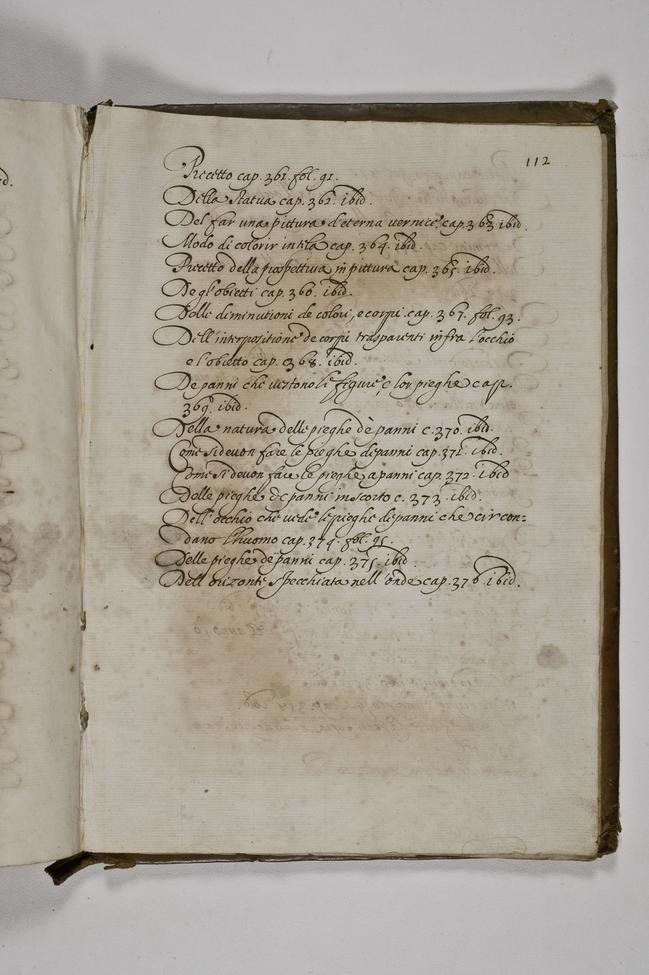 112
Precetto cap. 361. fol. 91.
Della statua cap. 362. ibid.
Del far una pittura d'eterna vernice cap. 363 ibid.
Modo di colorir in tela cap. 364. ibid.
Precetto della prospettiva in pittura cap. 365. ibid.
De gl'obietti cap. 366. ibid.
Delle diminutioni de colori, e corpi. cap. 367. fol. 93.
Dell'interpositione de corpi trasparenti infra l'occhio
e l'obietto cap. 368. ibid.
De panni che vestono le figure, e lor pieghe cap.
369. ibid.
Della natura delle pieghe de panni c. 370. ibid.
Come si devon fare le pieghe di panni cap. 371. ibid.
Come si devon fare le pieghe a panni cap. 372. ibid
Delle pieghe de panni in scorto c. 373. ibid.
Dell'occhio che vede le pieghe di panni che circon=
dano l'huomo cap. 374. fol. 95.
Delle pieghe de panni cap. 375. ibid.
Dell'orizonte specchiato nell'onde cap. 376. ibid.